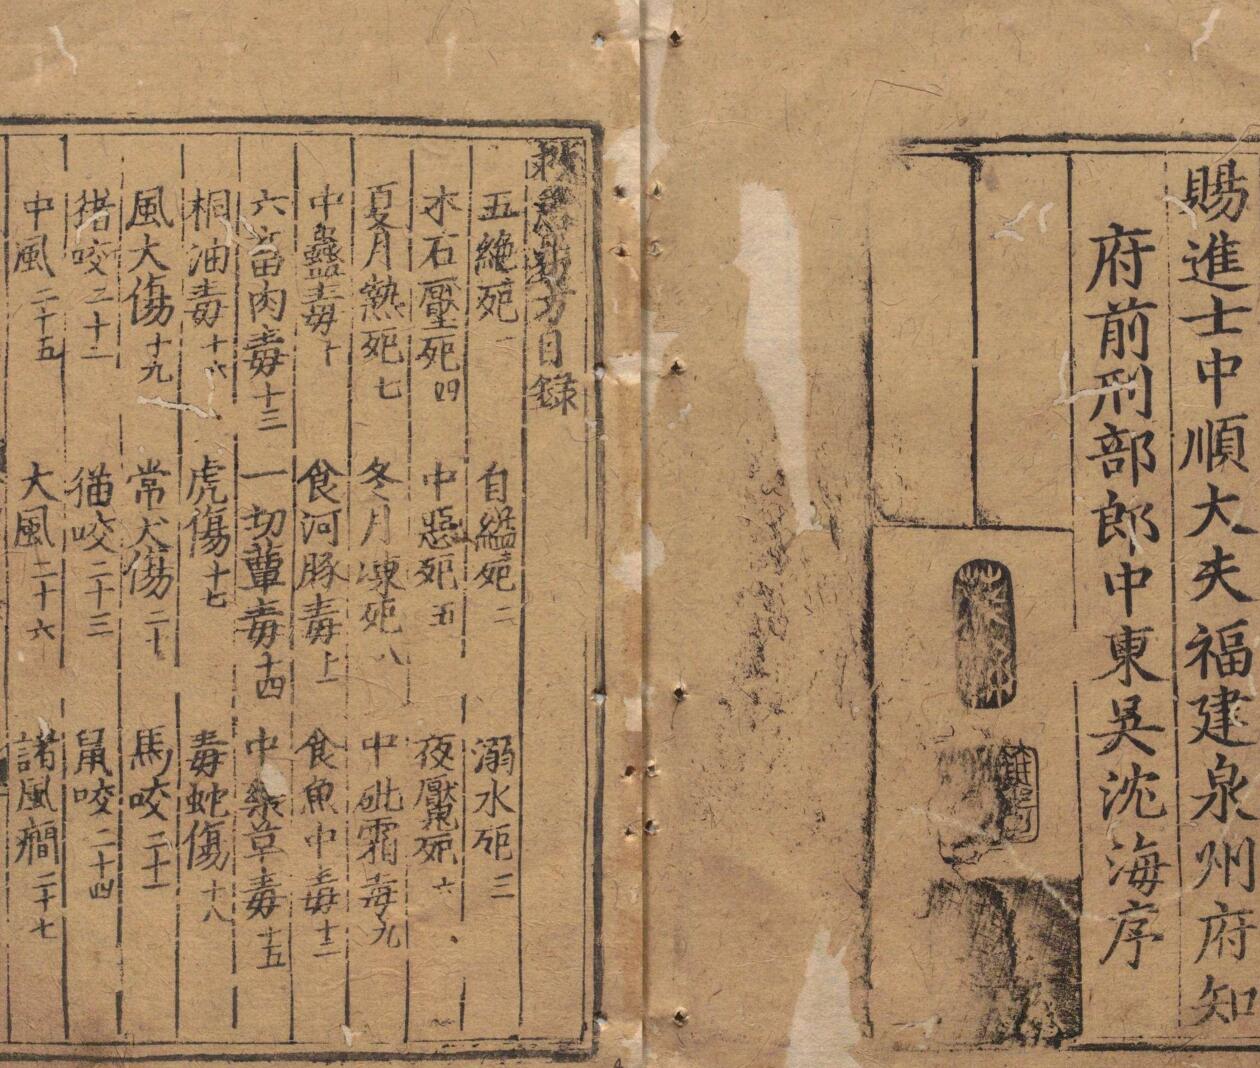 賜進士中順大夫福建泉州府知
府前刑部郎中東吳沈海序
救急易方目錄
五絶死一 自縊死二 溺水死三
木石壓死四 中惡死五 夜魘死六
夏月熱死七 冬月凍死八 中砒霜毒九
中蠱毒十 食河豚毒十一 食魚中毒十二
六畜肉毒十三 一切蕈毒十四 中藥草毒十五
桐油毒十六 虎傷十七 毒蛇傷十八
風犬傷十九 常犬傷二十 馬咬二十一
猪咬二十二 猫咬二十三 鼠咬二十四
中風二十五 大風二十六 諸風癇二十七